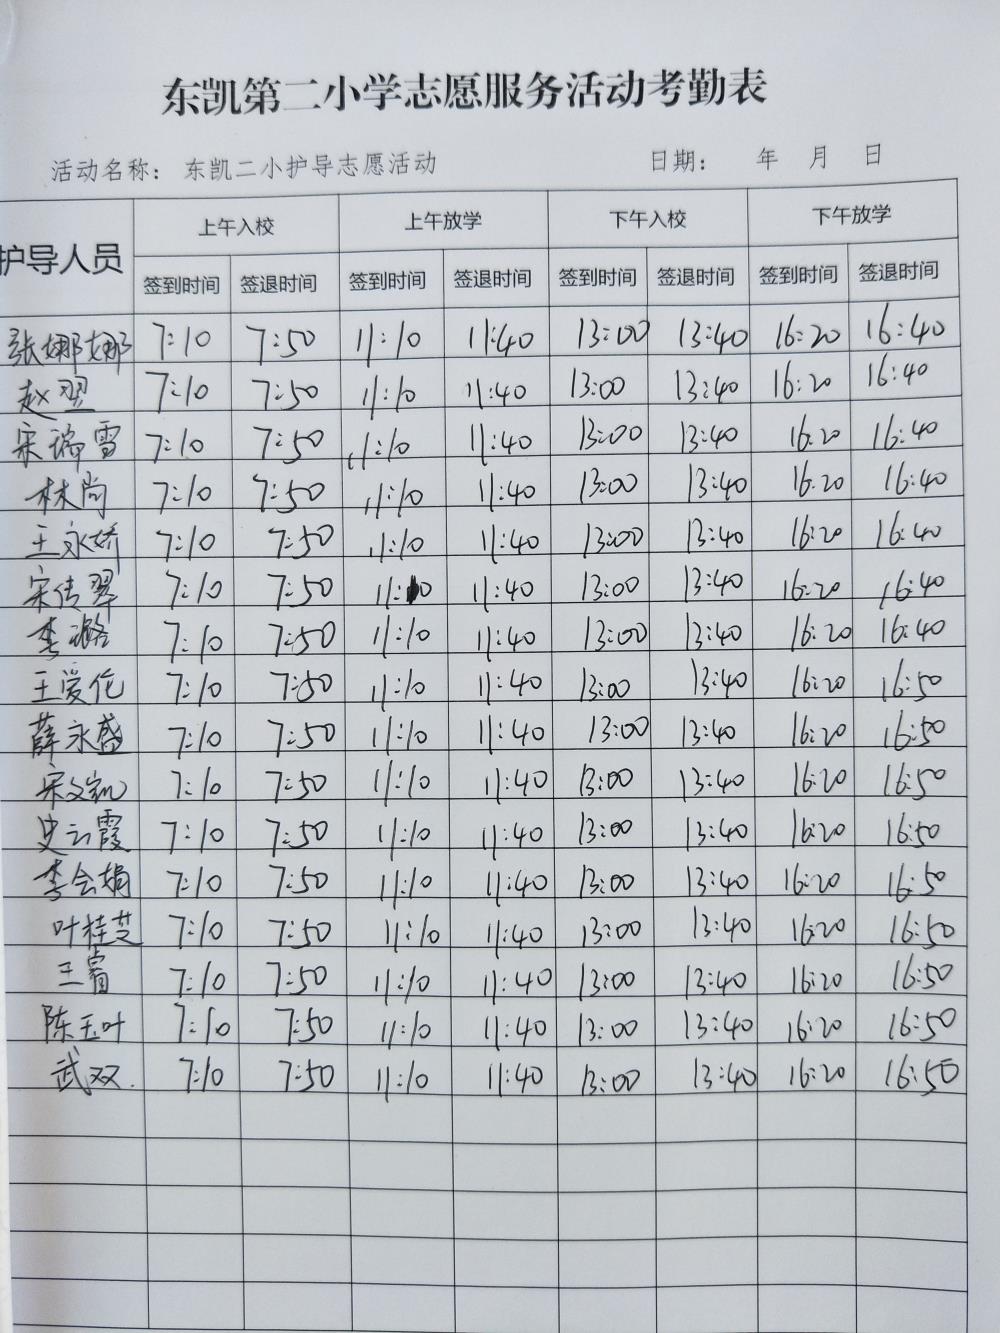 东凯第二小学志愿服务活动考勤表
活动名称: 东凯二小护导志愿活动 日期: 年 月 日
护导人员 上午入校 上午放学 下午入校 下午放学
签到时间 签退时间 签到时间 签退时间 签到时间 签退时间 签到时间 签退时间
张娜娜 7:10 7:50 11:10 11:40 13:00 13:40 16:20 16:40
赵翌 7:10 7:50 11:10 11:40 13:00 13:40 16:20 16:40
宋瑞雪 7:10 7:50 11:10 11:40 13:00 13:40 16:20 16:40
林尚 7:10 7:50 11:10 11:40 13:00 13:40 16:20 16:40
王永娇 7:10 7:50 11:10 11:40 13:00 13:40 16:20 16:40
宋传翠 7:10 7:50 11:10 11:40 13:00 13:40 16:20 16:40
李璐 7:10 7:50 11:10 11:40 13:00 13:40 16:20 16:40
王爱伦 7:10 7:50 11:10 11:40 13:00 13:40 16:20 16:50
薛永盛 7:10 7:50 11:10 11:40 13:00 13:40 16:20 16:50
宋文凯 7:10 7:50 11:10 11:40 13:00 13:40 16:20 16:50
史云霞 7:10 7:50 11:10 11:40 13:00 13:40 16:20 16:50
李会娟 7:10 7:50 11:10 11:40 13:00 13:40 16:20 16:50
叶桂芝 7:10 7:50 11:10 11:40 13:00 13:40 16:20 16:50
王睿 7:10 7:50 11:10 11:40 13:00 13:40 16:20 16:50
陈玉叶 7:10 7:50 11:10 11:40 13:00 13:40 16:20 16:50
武双. 7:10 7:50 11:10 11:40 13:00 13:40 16:20 16:50